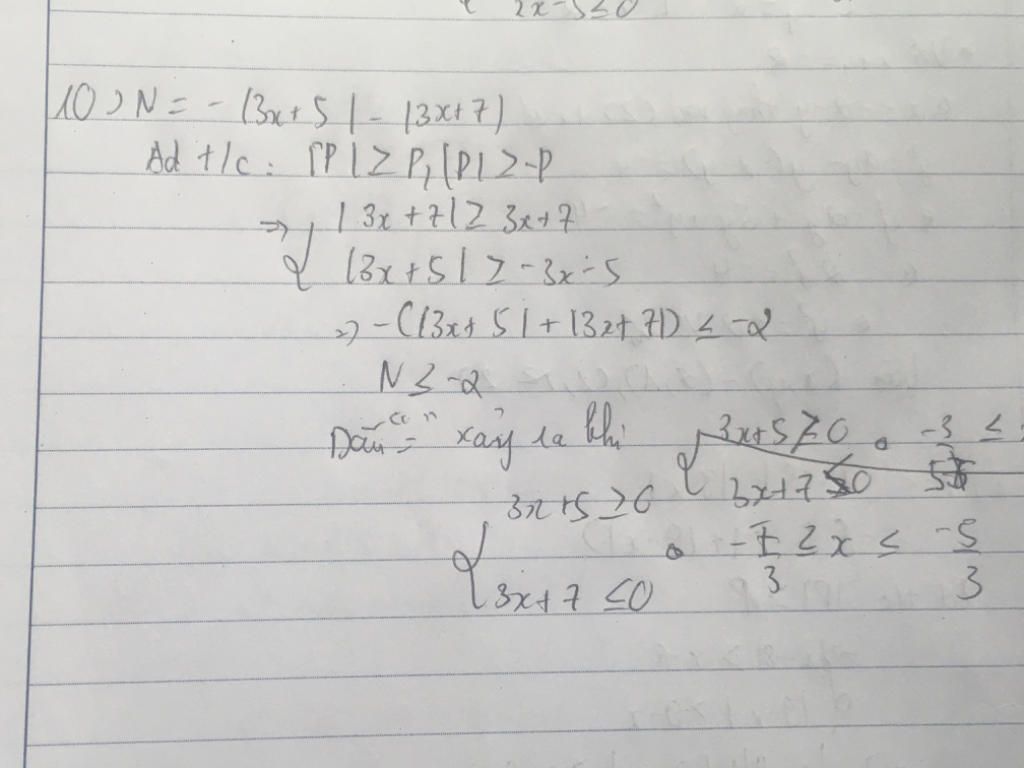 2x-5≤0
10) N = - |3x+5| - |3x+7|
Ad t/c: |P| ≥ P, |P| ≥ -P
=> { |3x+7| ≥ 3x+7
|3x+5| ≥ -3x-5
=> -(|3x+5| + |3x+7|) ≤ -2
N ≤ -2
Dấu "=" xảy ra khi
3x+5 ≥ 0
3x+7 ≤ 0
{ 3x+5 ≥ 0
3x+7 ≤ 0
-7/3 ≤ x ≤ -5/3